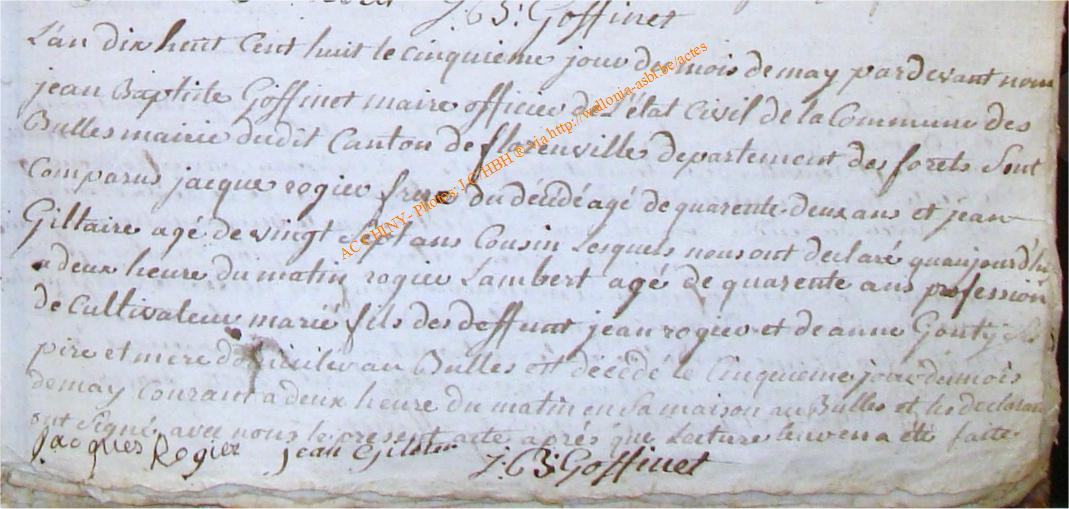 J: B: Goffinet
L'an dix huit Cent huit le cinquieme jour du mois de may pardevant nous
jean Baptiste Goffinet maire officier de L'état Civil de la Commune des
Bulles mairie dudit Canton de florenville departement des forets Sont
Comparus jacque rogier frere du décédé agé de quarente deux ans et jean
Giltaire agé de vingt sept ans Cousin Lesquels nous ont declaré quaujourd'hui
a deux heure du matin rogier Lambert agé de quarente ans profession
de Cultivateur marié fils des deffunt jean rogier et de anne Gonty
pire et mere domicilier au Bulles est décédé le Cinquieme jour du mois
de may Courant a deux heure du matin en Sa maison au Bulles et les declarant
ont Signé avec nous le present acte aprés que Lecture leur en a été faite
jacques Rogier jean Giltair J: B: Goffinet
AC CHINY - Photos: J.C. HBH © via http://wallonia-asbl.be/actes